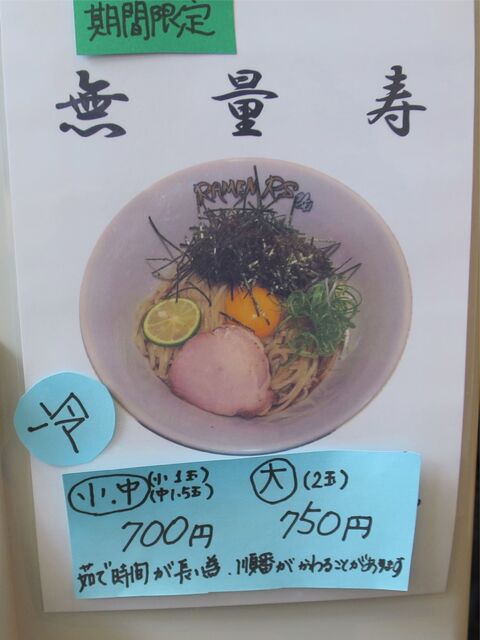 期間限定
無量寿
RAMEN RS
冷
小.中 (小1玉) (中1.5玉) 大 (2玉)
700円 750円
茹で時間が長い為、順番がかわることがあります